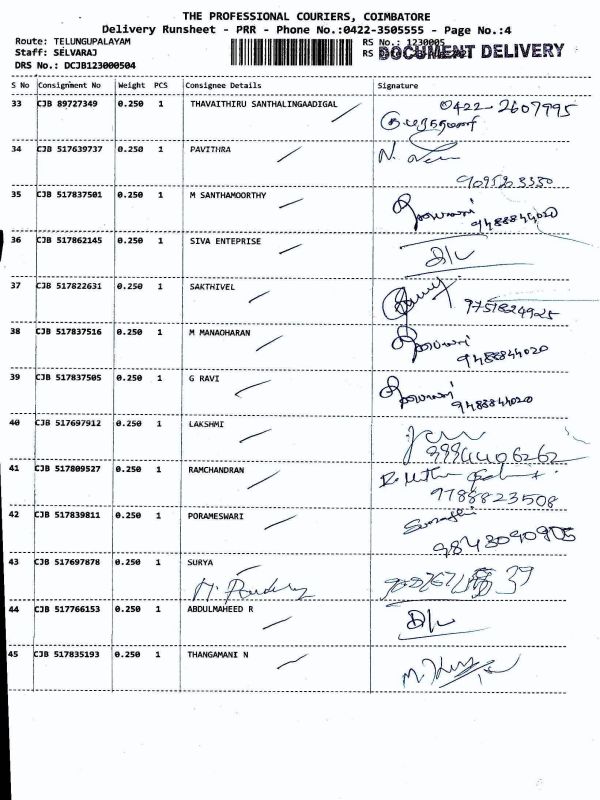 THE PROFESSIONAL COURIERS, COIMBATORE
Delivery Runsheet - PRR - Phone No.:0422-3505555 - Page No.:4
Route: TELUNGUPALAYAM RS No.: 1230005
Staff: SELVARAJ RS DOCUMENT DELIVERY
DRS No.: DCJB123000504
S No Consignment No Weight PCS Consignee Details Signature
33 CJB 89727349 0.250 1 THAVAITHIRU SANTHALINGAADIGAL 0422-2607995
34 CJB 517639737 0.250 1 PAVITHRA N.
35 CJB 517837501 0.250 1 M SANTHAMOORTHY
9488844020
36 CJB 517862145 0.250 1 SIVA ENTEPRISE
D/L
37 CJB 517822631 0.250 1 SAKTHIVEL
9751824925
38 CJB 517837516 0.250 1 M MANAOHARAN
9488844020
39 CJB 517837505 0.250 1 G RAVI
9488844020
40 CJB 517697912 0.250 1 LAKSHMI
9994406262
41 CJB 517809527 0.250 1 RAMCHANDRAN
9788823508
42 CJB 517839811 0.250 1 PORAMESWARI
9843090905
43 CJB 517697878 0.250 1 SURYA
44 CJB 517766153 0.250 1 ABDULMAHEED R
D/L
45 CJB 517835193 0.250 1 THANGAMANI N